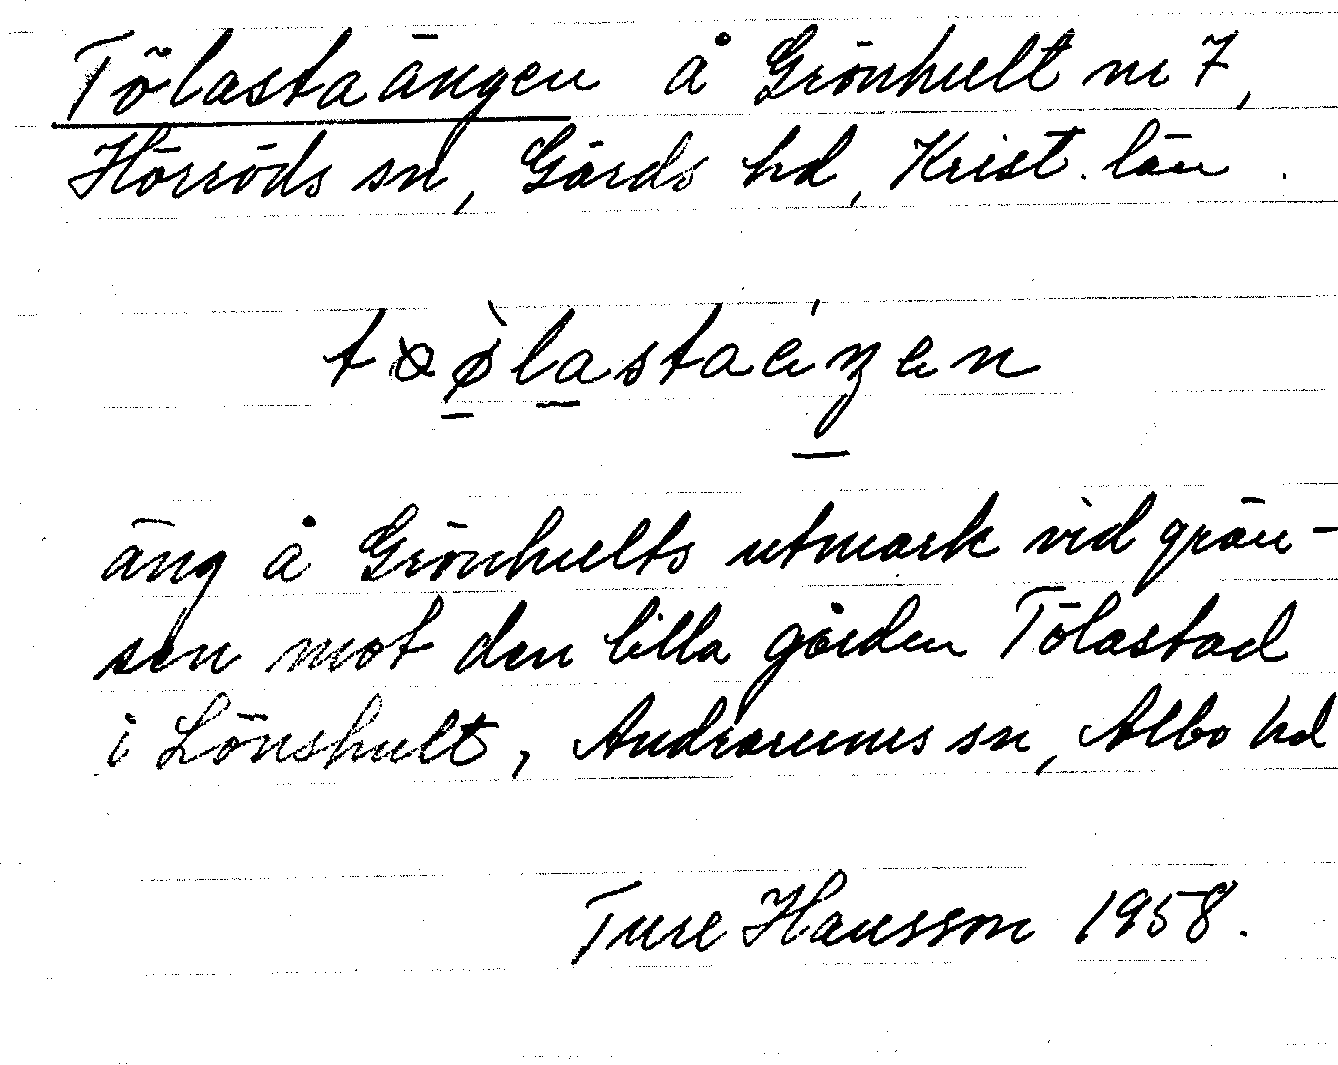 Tölastaängen å Grönhult nr 7,
Hörröds sn, Gärds hd, Krist. län.
äng å Grönhults utmark vid grän-
sen mot den lilla gården Tölastad
i Lönshult, Andrarums sn, Albo hd
Ture Hansson 1958.